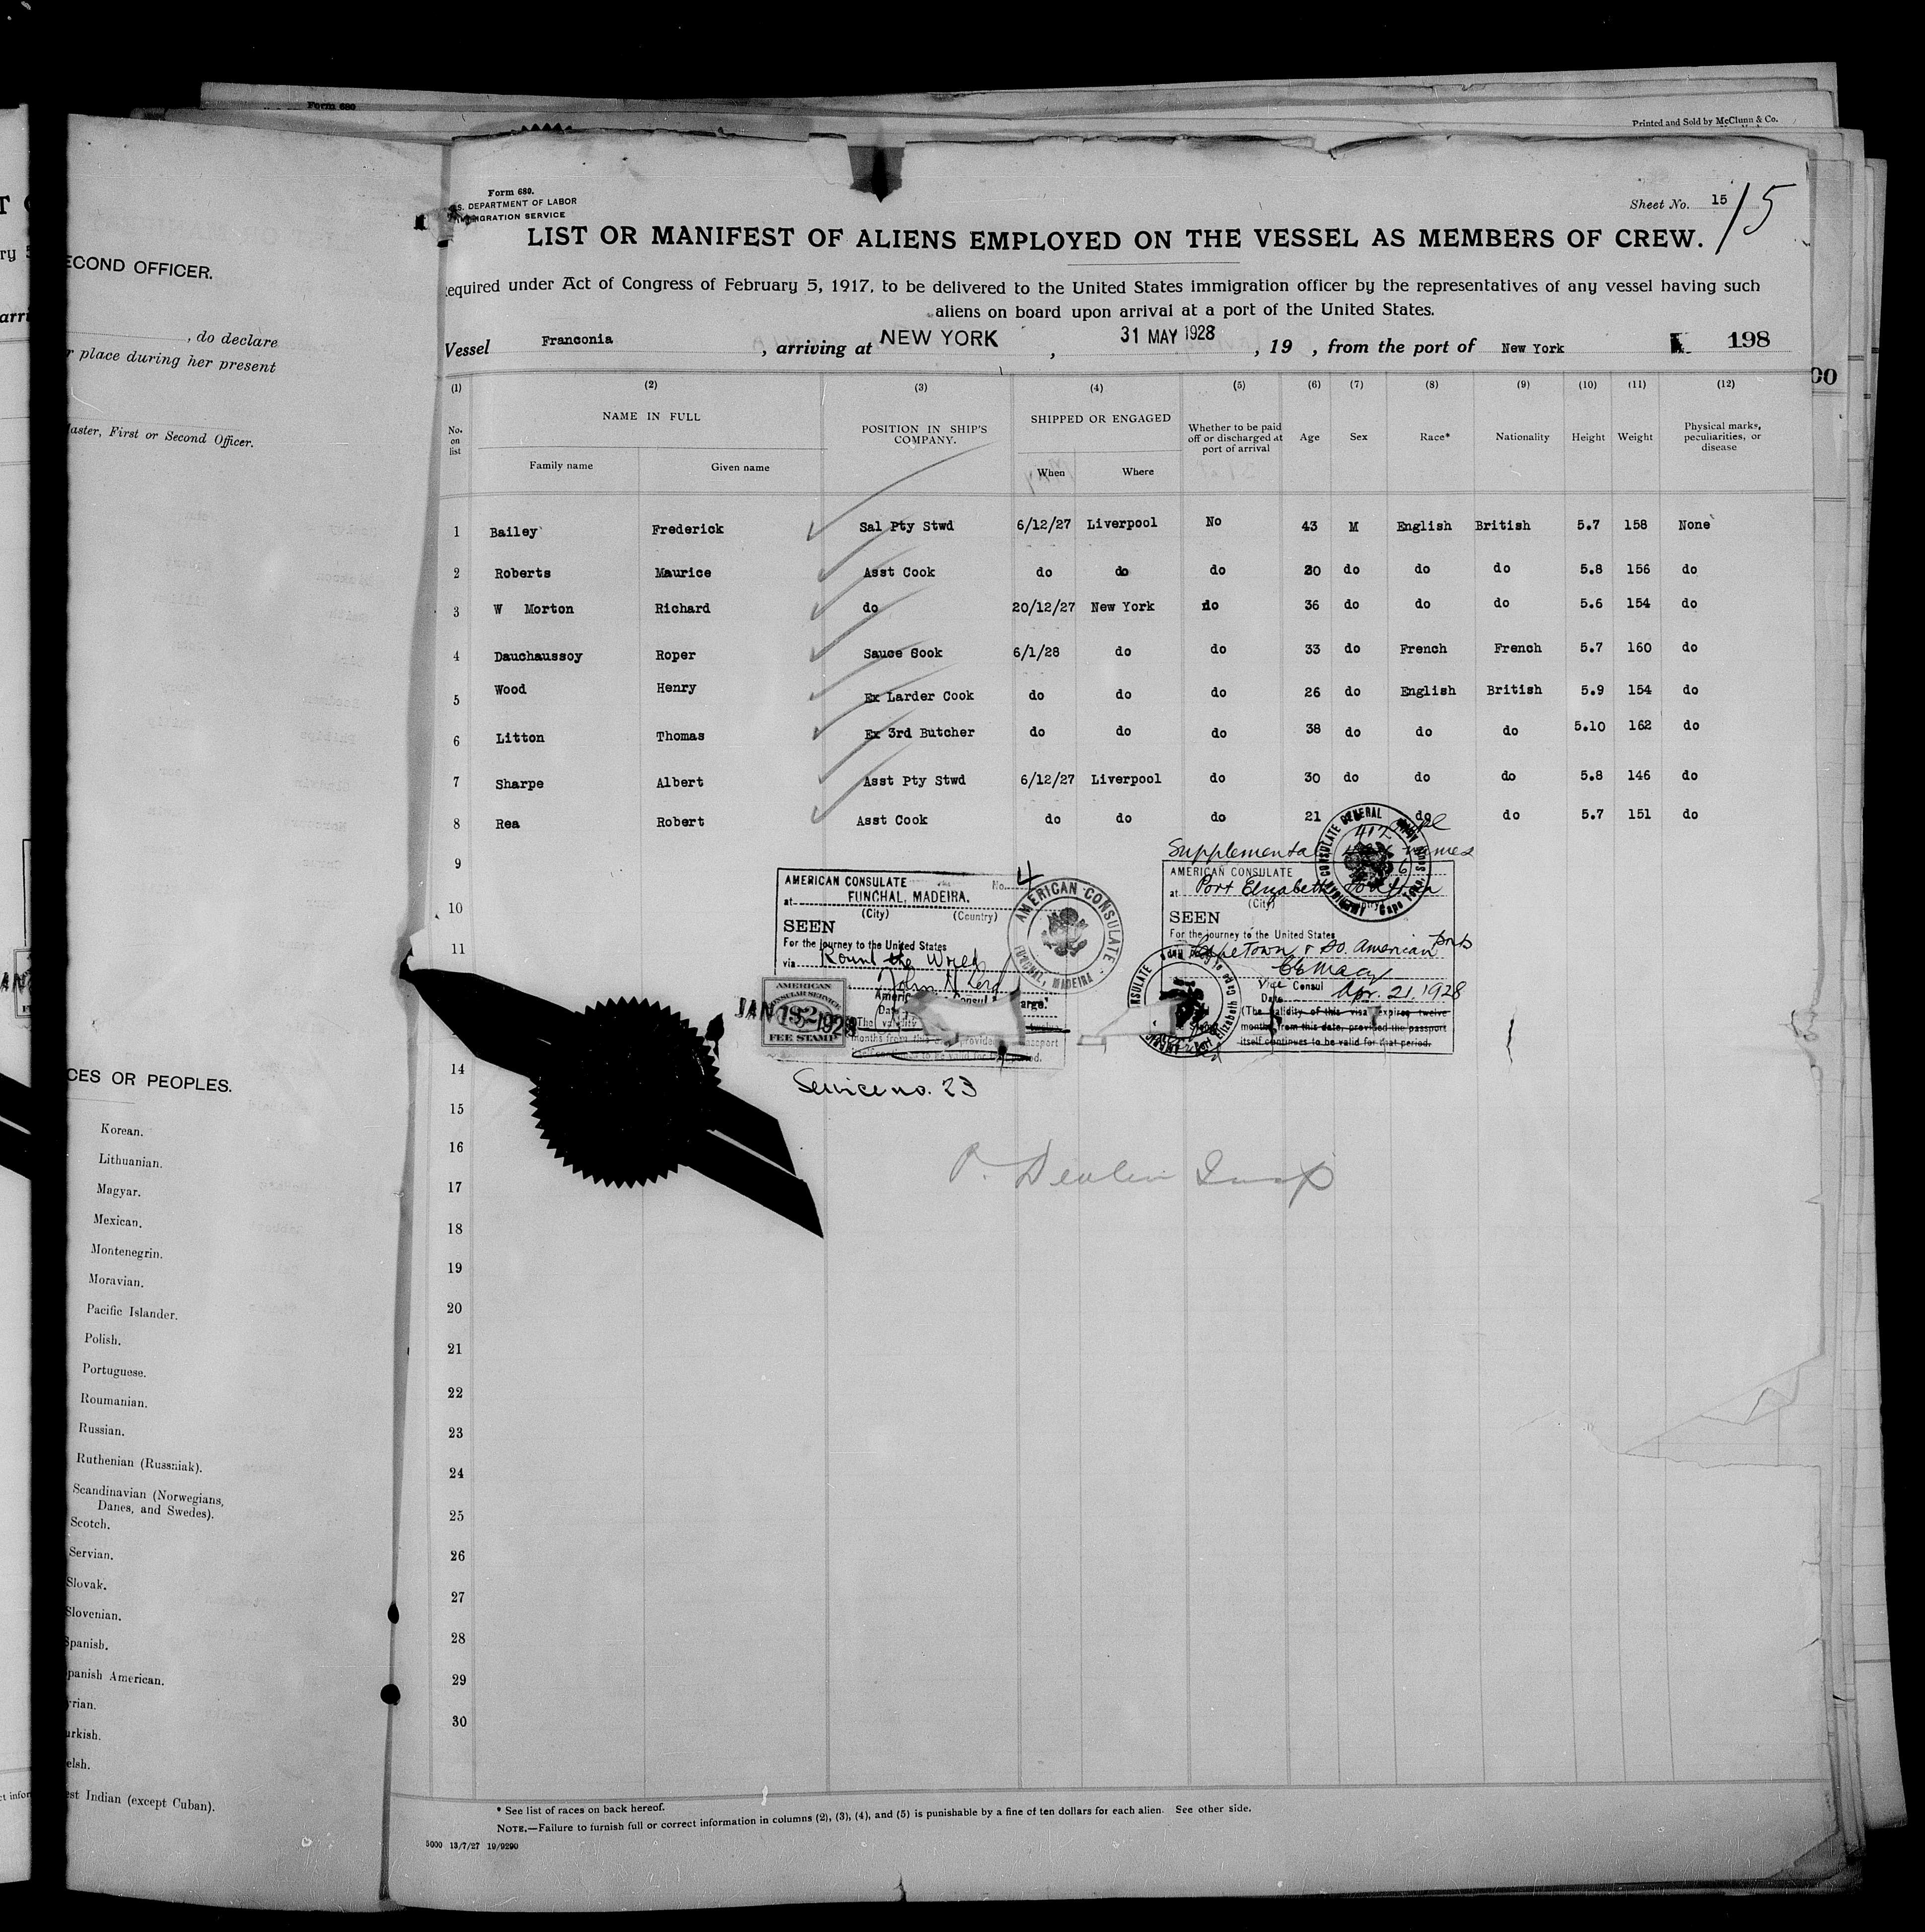 Form 680
Printed and Sold by McClunn & Co.
Form 680.
S. DEPARTMENT OF LABOR
IMMIGRATION SERVICE
Sheet No. 15
15
LIST OR MANIFEST OF ALIENS EMPLOYED ON THE VESSEL AS MEMBERS OF CREW.
equired under Act of Congress of February 5, 1917, to be delivered to the United States immigration officer by the representatives of any vessel having such
aliens on board upon arrival at a port of the United States.
Vessel Franconia , arriving at NEW YORK , 31 MAY 1928 , 19 , from the port of New York 198
(1) (2) (3) (4) (5) (6) (7) (8) (9) (10) (11) (12)
No. on list NAME IN FULL POSITION IN SHIP'S COMPANY. SHIPPED OR ENGAGED Whether to be paid off or discharged at port of arrival Age Sex Race* Nationality Height Weight Physical marks, peculiarities, or disease
Family name Given name When Where
1 Bailey Frederick Sal Pty Stwd 6/12/27 Liverpool No 43 M English British 5.7 158 None
2 Roberts Maurice Asst Cook do do do 20 do do do 5.8 156 do
3 W Morton Richard do 20/12/27 New York do 36 do do do 5.6 154 do
4 Dauchaussoy Roper Sauce Cook 6/1/28 do do 33 do French French 5.7 160 do
5 Wood Henry Ex Larder Cook do do do 26 do English British 5.9 154 do
6 Litton Thomas Ex 3rd Butcher do do do 38 do do do 5.10 162 do
7 Sharpe Albert Asst Pty Stwd 6/12/27 Liverpool do 30 do do do 5.8 146 do
8 Rea Robert Asst Cook do do do 21 do do 5.7 151 do
9
10
11
14
15
16
17
18
19
20
21
22
23
24
25
26
27
28
29
30
AMERICAN CONSULATE No. 4
at FUNCHAL, MADEIRA.
(City) (Country)
SEEN
For the journey to the United States
via Round the World
AMERICAN CONSULATE
FUNCHAL, MADEIRA
AMERICAN
CONSULAR SERVICE
FEE STAMP
JAN 15 1928
Service no. 23
Supplemental names
AMERICAN CONSULATE
at Port Elizabeth
(City)
SEEN
For the journey to the United States
Capetown & So. American Ports
Vice Consul
Date Apr. 21, 1928
(The validity of this visa expires twelve
months from this date, provided the passport
itself continues to be valid for that period.
* See list of races on back hereof.
NOTE.—Failure to furnish full or correct information in columns (2), (3), (4), and (5) is punishable by a fine of ten dollars for each alien. See other side.
5000 13/7/27 19/9290
ECOND OFFICER.
, do declare
r place during her present
aster, First or Second Officer.
CES OR PEOPLES.
Korean.
Lithuanian.
Magyar.
Mexican.
Montenegrin.
Moravian.
Pacific Islander.
Polish.
Portuguese.
Roumanian.
Russian.
Ruthenian (Russniak).
Scandinavian (Norwegians,
Danes, and Swedes).
Scotch.
Servian.
Slovak.
Slovenian.
Spanish.
panish American.
yrian.
urkish.
elsh.
est Indian (except Cuban).